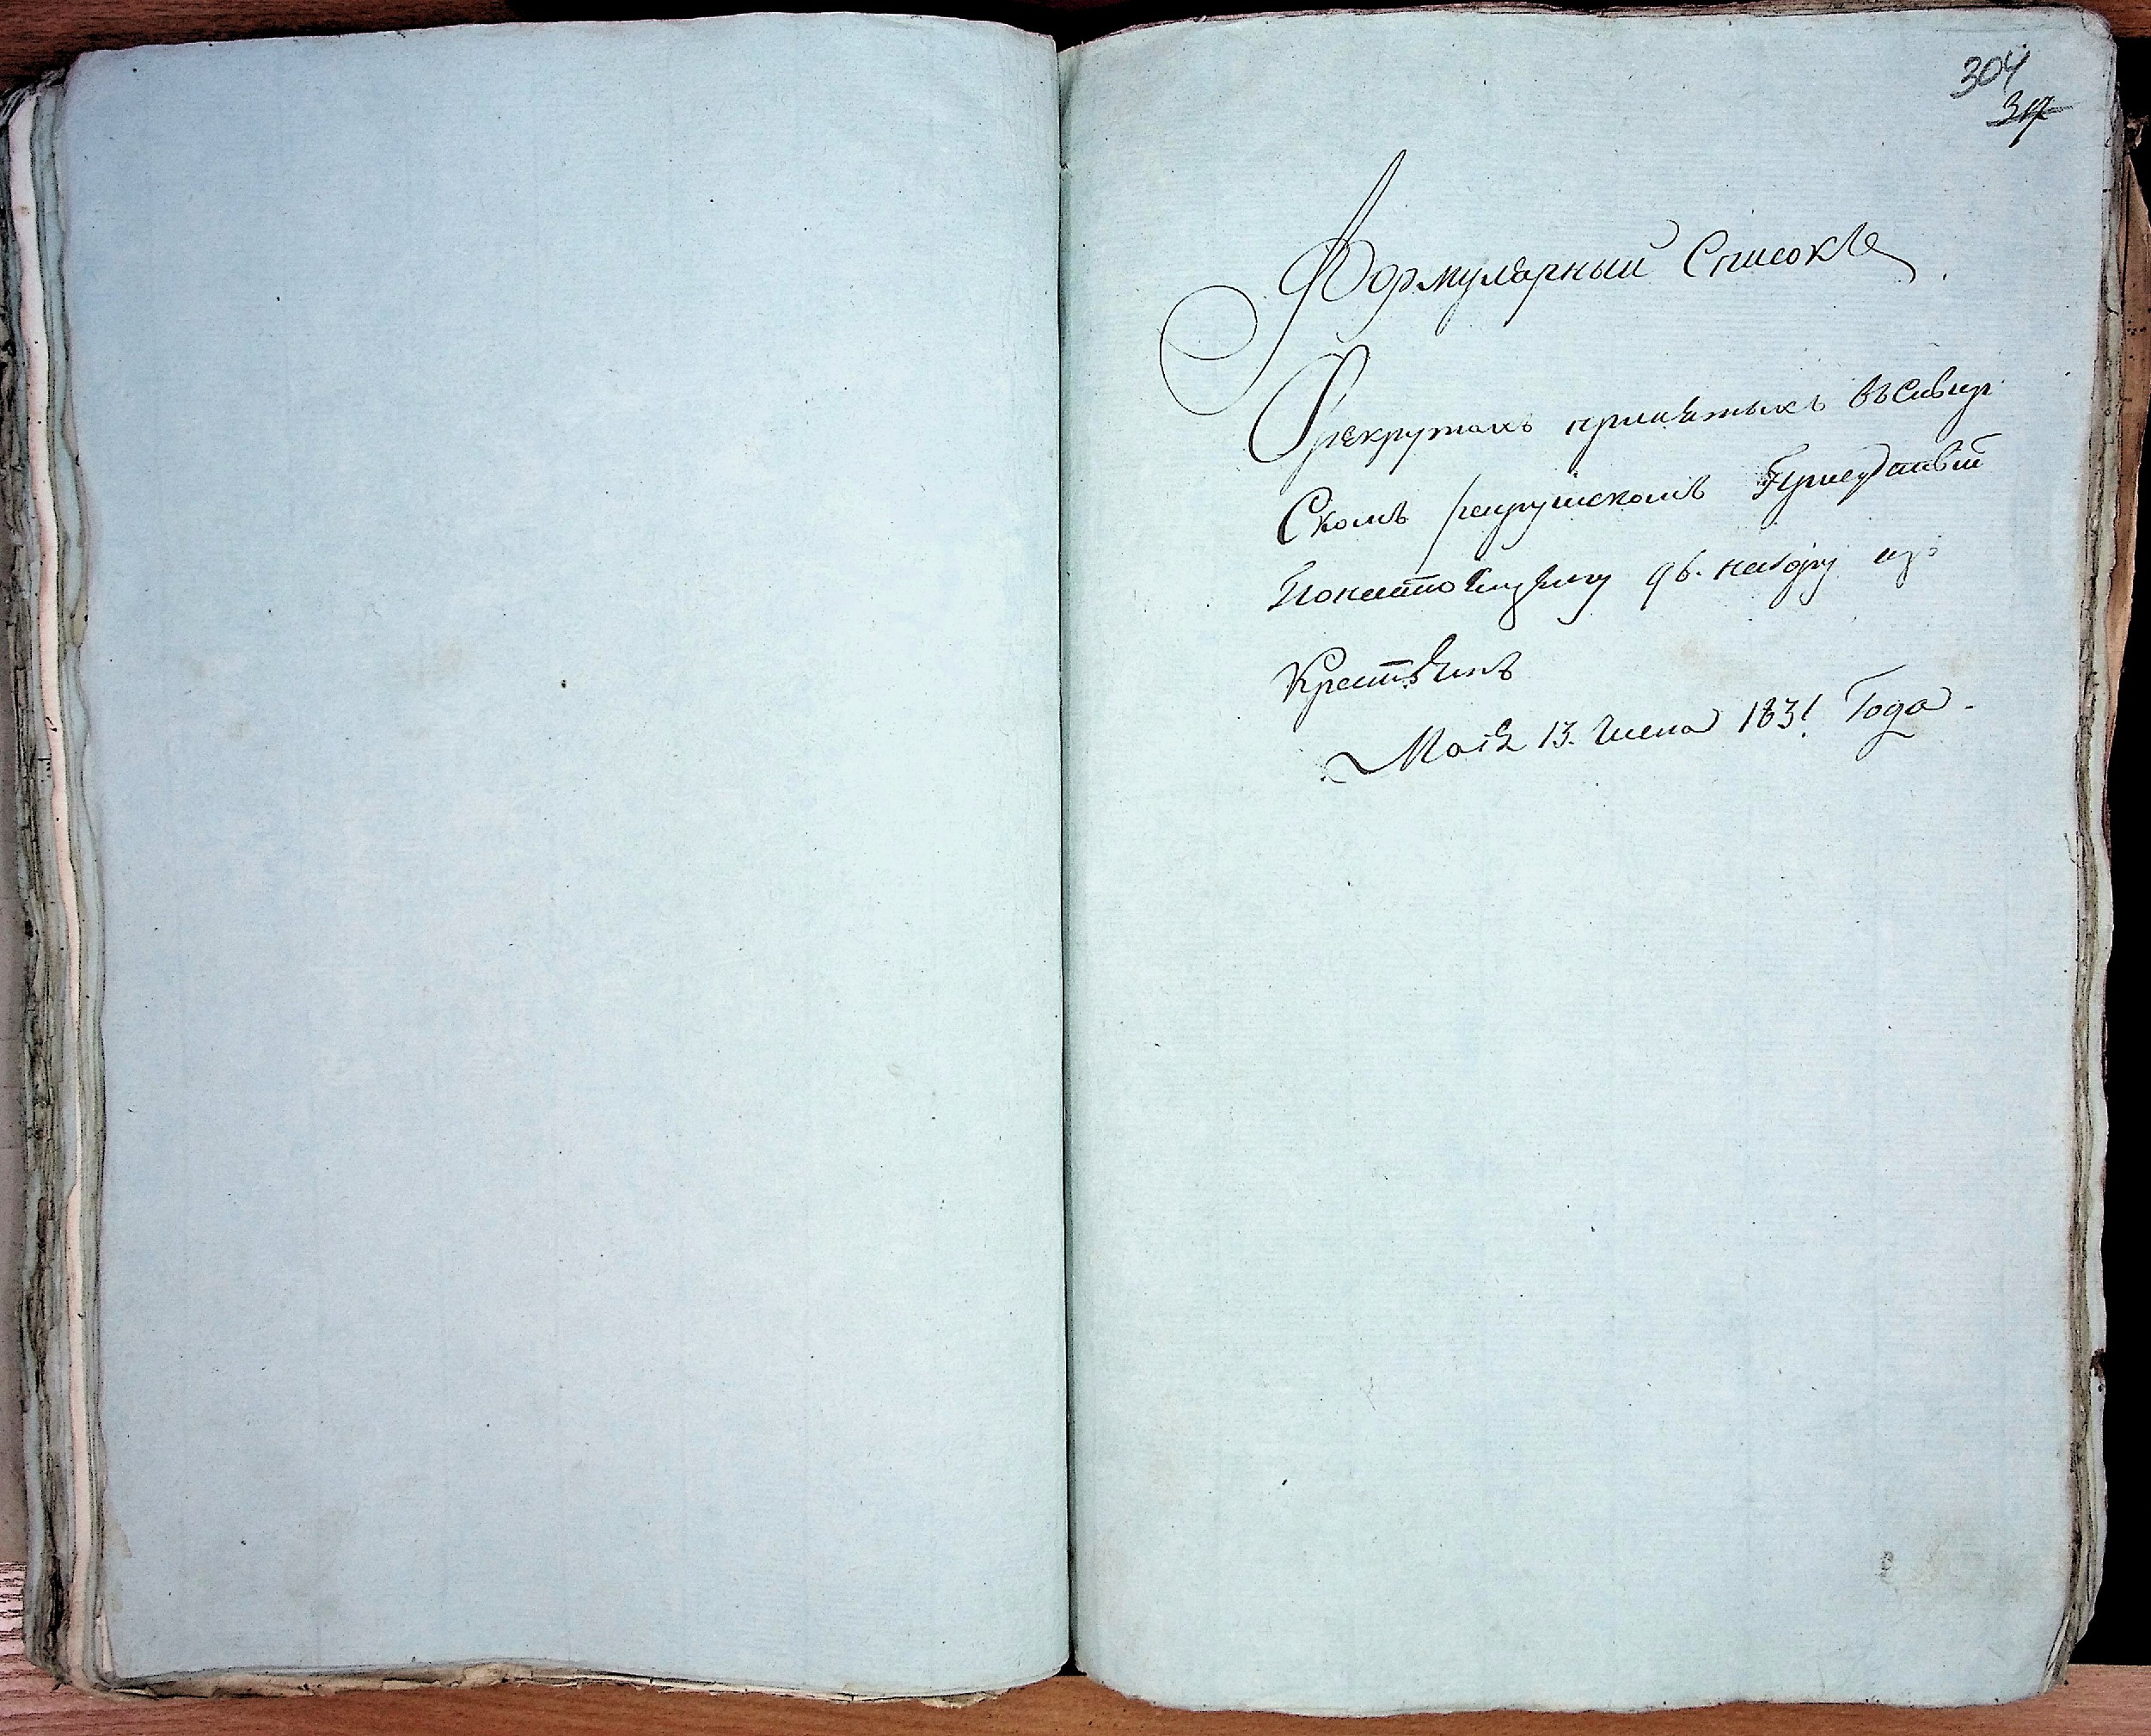 304
317
Формулярный Списокъ
О рекрутахъ принятыхъ въ Симбир
Скомъ рекрутскомъ Присутствій
По 96. набору изъ
Крестьянъ
Маія 13. числа 1831 Года